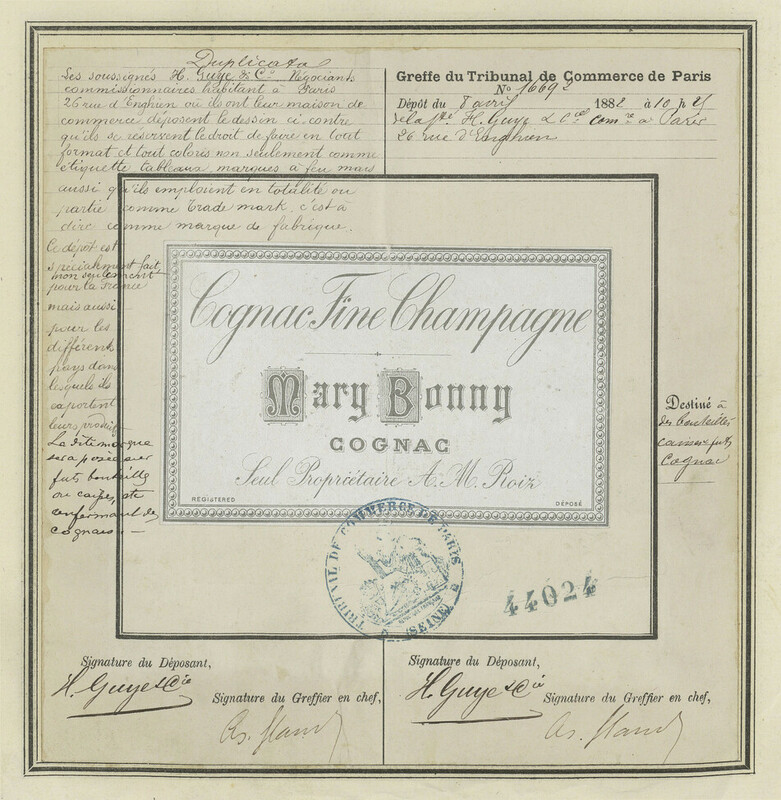 Duplicata
Les soussignés H. Guye & Cie Négociants
commissionnaires habitant à Paris
26 rue d'Enghien où ils ont leur maison de
commerce déposent le dessin ci contre
qu'ils se réservent le droit de faire en tout
format et tout coloris non seulement comme
étiquette tableaux marques à feu mais
aussi qu'ils emploient en totalité ou
partie comme trade mark, c'est à
dire comme marque de fabrique.
Ce dépôt est
spécialement fait,
non seulement
pour la France
mais aussi
pour les
différents
pays dans
lesquels ils
exportent
leurs produits
La dite marque
sera posée sur
futs bouteilles
ou caisses etc
renfermant des
cognacs
Greffe du Tribunal de Commerce de Paris
No 16692
Dépôt du 8 avril 1882 à 10 h 25
de la Sté H. Guye & Cie comre à Paris
26 rue d'Enghien
Cognac Fine Champagne
Mary Bonny
COGNAC
Seul Propriétaire A. M. Roiz
REGISTERED DÉPOSÉ
Destiné à
des bouteilles
caisses futs
Cognac
TRIBUNAL DE COMMERCE DE PARIS
(SEINE)
44024
Signature du Déposant,
H. Guye & Cie
Signature du Greffier en chef,
Signature du Déposant,
H. Guye & Cie
Signature du Greffier en chef,